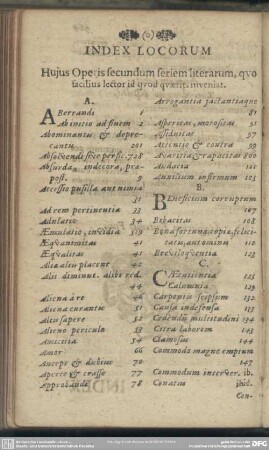 INDEX LOCORUM
Hujus Operis secundum seriem literarum, quo
facilius lector id quod quærit, inveniat.
A.
Aberrandi
Ab initio ad finem 2
Abominantis & depre-
cantis 201
Absolvendi se percise. 728
Absurda, indecora, præ-
post. 9
Accessio pusilla aut nimia
31
Ad rem pertinentia 33
Adulatio 34
Æmulatio, invidia 519
Æquanimitas 41
Æqualitas 41
Alia aliis placent 42
Alii diminut. alibi red.
44
Aliena à re 44
Aliena curantis 51
Altè sapere 52
Alieno periculo 53
Amicitia 54
Amor 66
Anceps & dubius 70
Aperte & crasse 77
Approbandi 78
Arrogantia jactantiaque
81
Asperitas, morositas 91
Assiduitas 97
Attentio & contra 99
Avaritia & rapacitas 800
Audacia 101
Auxilium infirmum 103
B.
Beneficium corruptum
107
Bibacitas 108
Bona fortuna, copia, felici-
tas, autonimia 110
Breviloquentia 123
C.
Cæcutientia 125
Calumnia 129
Carpentis seipsum 132
Causa indefensa 133
Cedendi multitudini 134
Citra laborem 143
Clamosus 144
Commoda magno emptum
147
Commodum interver. ib.
Conatus ibid.
Con-